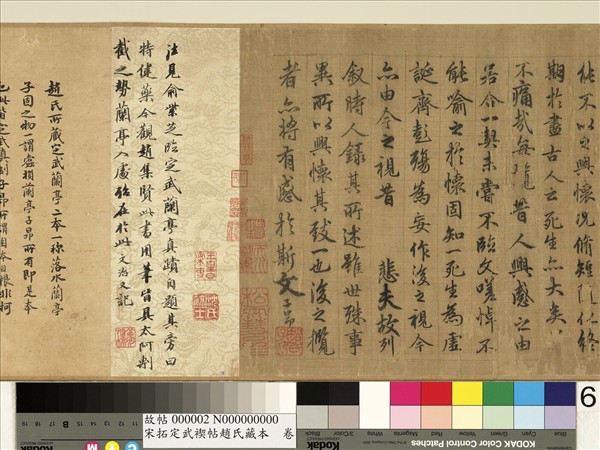 能不以之興懷況脩短隨化終
期於盡古人云死生亦大矣
不痛哉每攬昔人興感之由
若合一契未嘗不臨文嗟悼不
能喻之於懷固知一死生為虛
誕齊彭殤為妄作後之視今
亦由今之視昔 悲夫故列
敘時人錄其所述雖世殊事
異所以興懷其致一也後之攬
者亦將有感於斯文 子昂
往見俞紫芝臨定武蘭亭真蹟內題其旁曰
特健藥今觀趙集賢此書用筆皆具太阿剸
截之勢蘭亭八處猶在於此 文治又記
趙氏所藏定武蘭亭二本一称落水蘭亭
子固之物一謂
蘭亭子昂所有即是本
6
故帖 000002 N000000000
宋拓定武禊帖趙氏藏本 卷
Blue
Cyan
Green
Yellow
Red
Magenta
White
3/Color
Black
KODAK Color Control Patches
19 18 17 16 15 B 14 13 12 11 10
C M